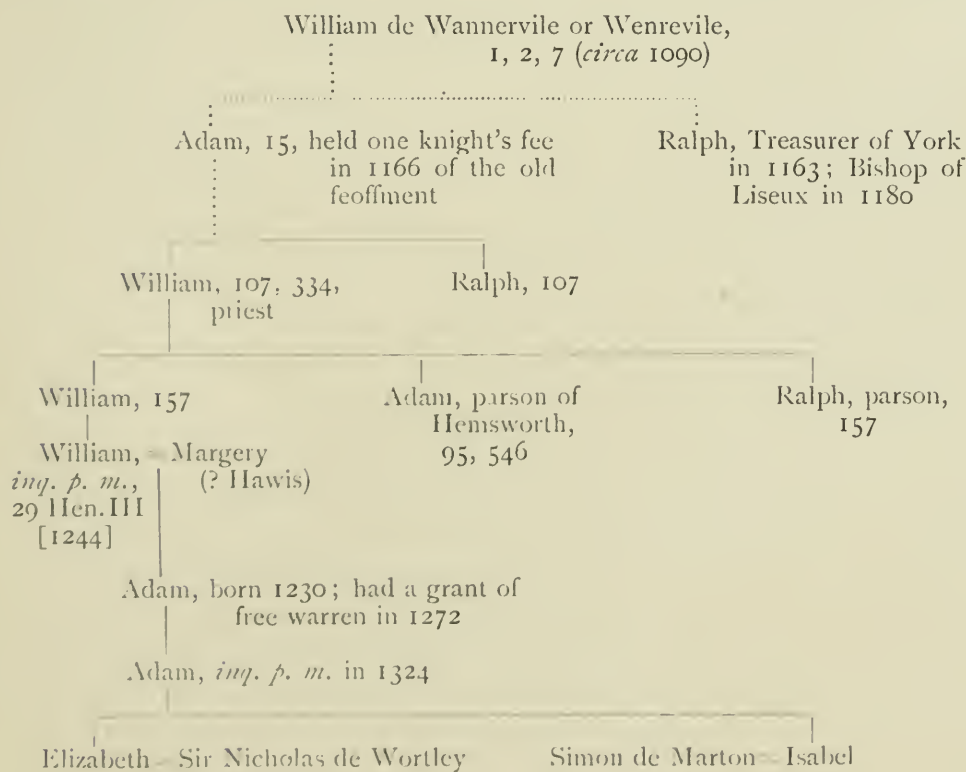 William de Wannervile or Wenrevile,
1, 2, 7 (circa 1090)
Adam, 15, held one knight's fee
in 1166 of the old
feoffment
Ralph, Treasurer of York
in 1163; Bishop of
Liseux in 1180
William, 107, 334,
priest
Ralph, 107
William, 157
Adam, parson of
Hemsworth,
95, 546
Ralph, parson,
157
William, = Margery
inq. p. m., (? Hawis)
29 Hen. III
[1244]
Adam, born 1230; had a grant of
free warren in 1272
Adam, inq. p. m. in 1324
Elizabeth = Sir Nicholas de Wortley
Simon de Marton = Isabel